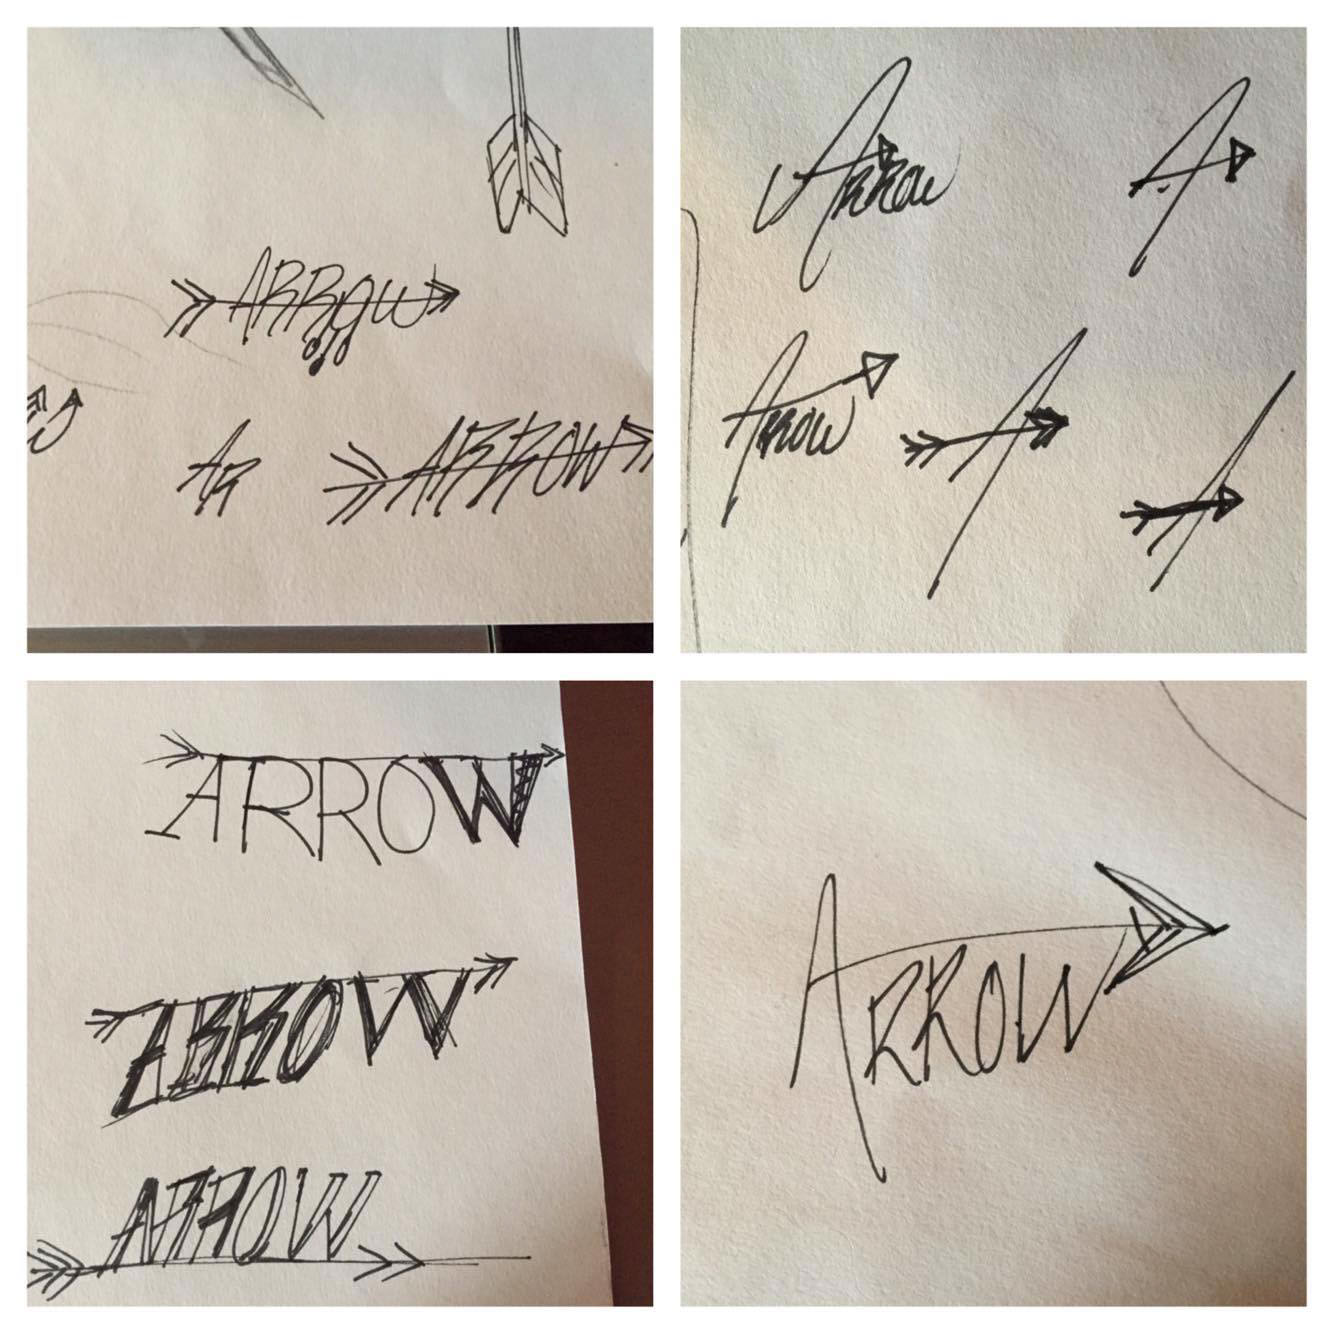 ARROW
AR
ARROW
Arrow
A
Arrow
A
A
ARROW
ARROW
ARROW
ARROW